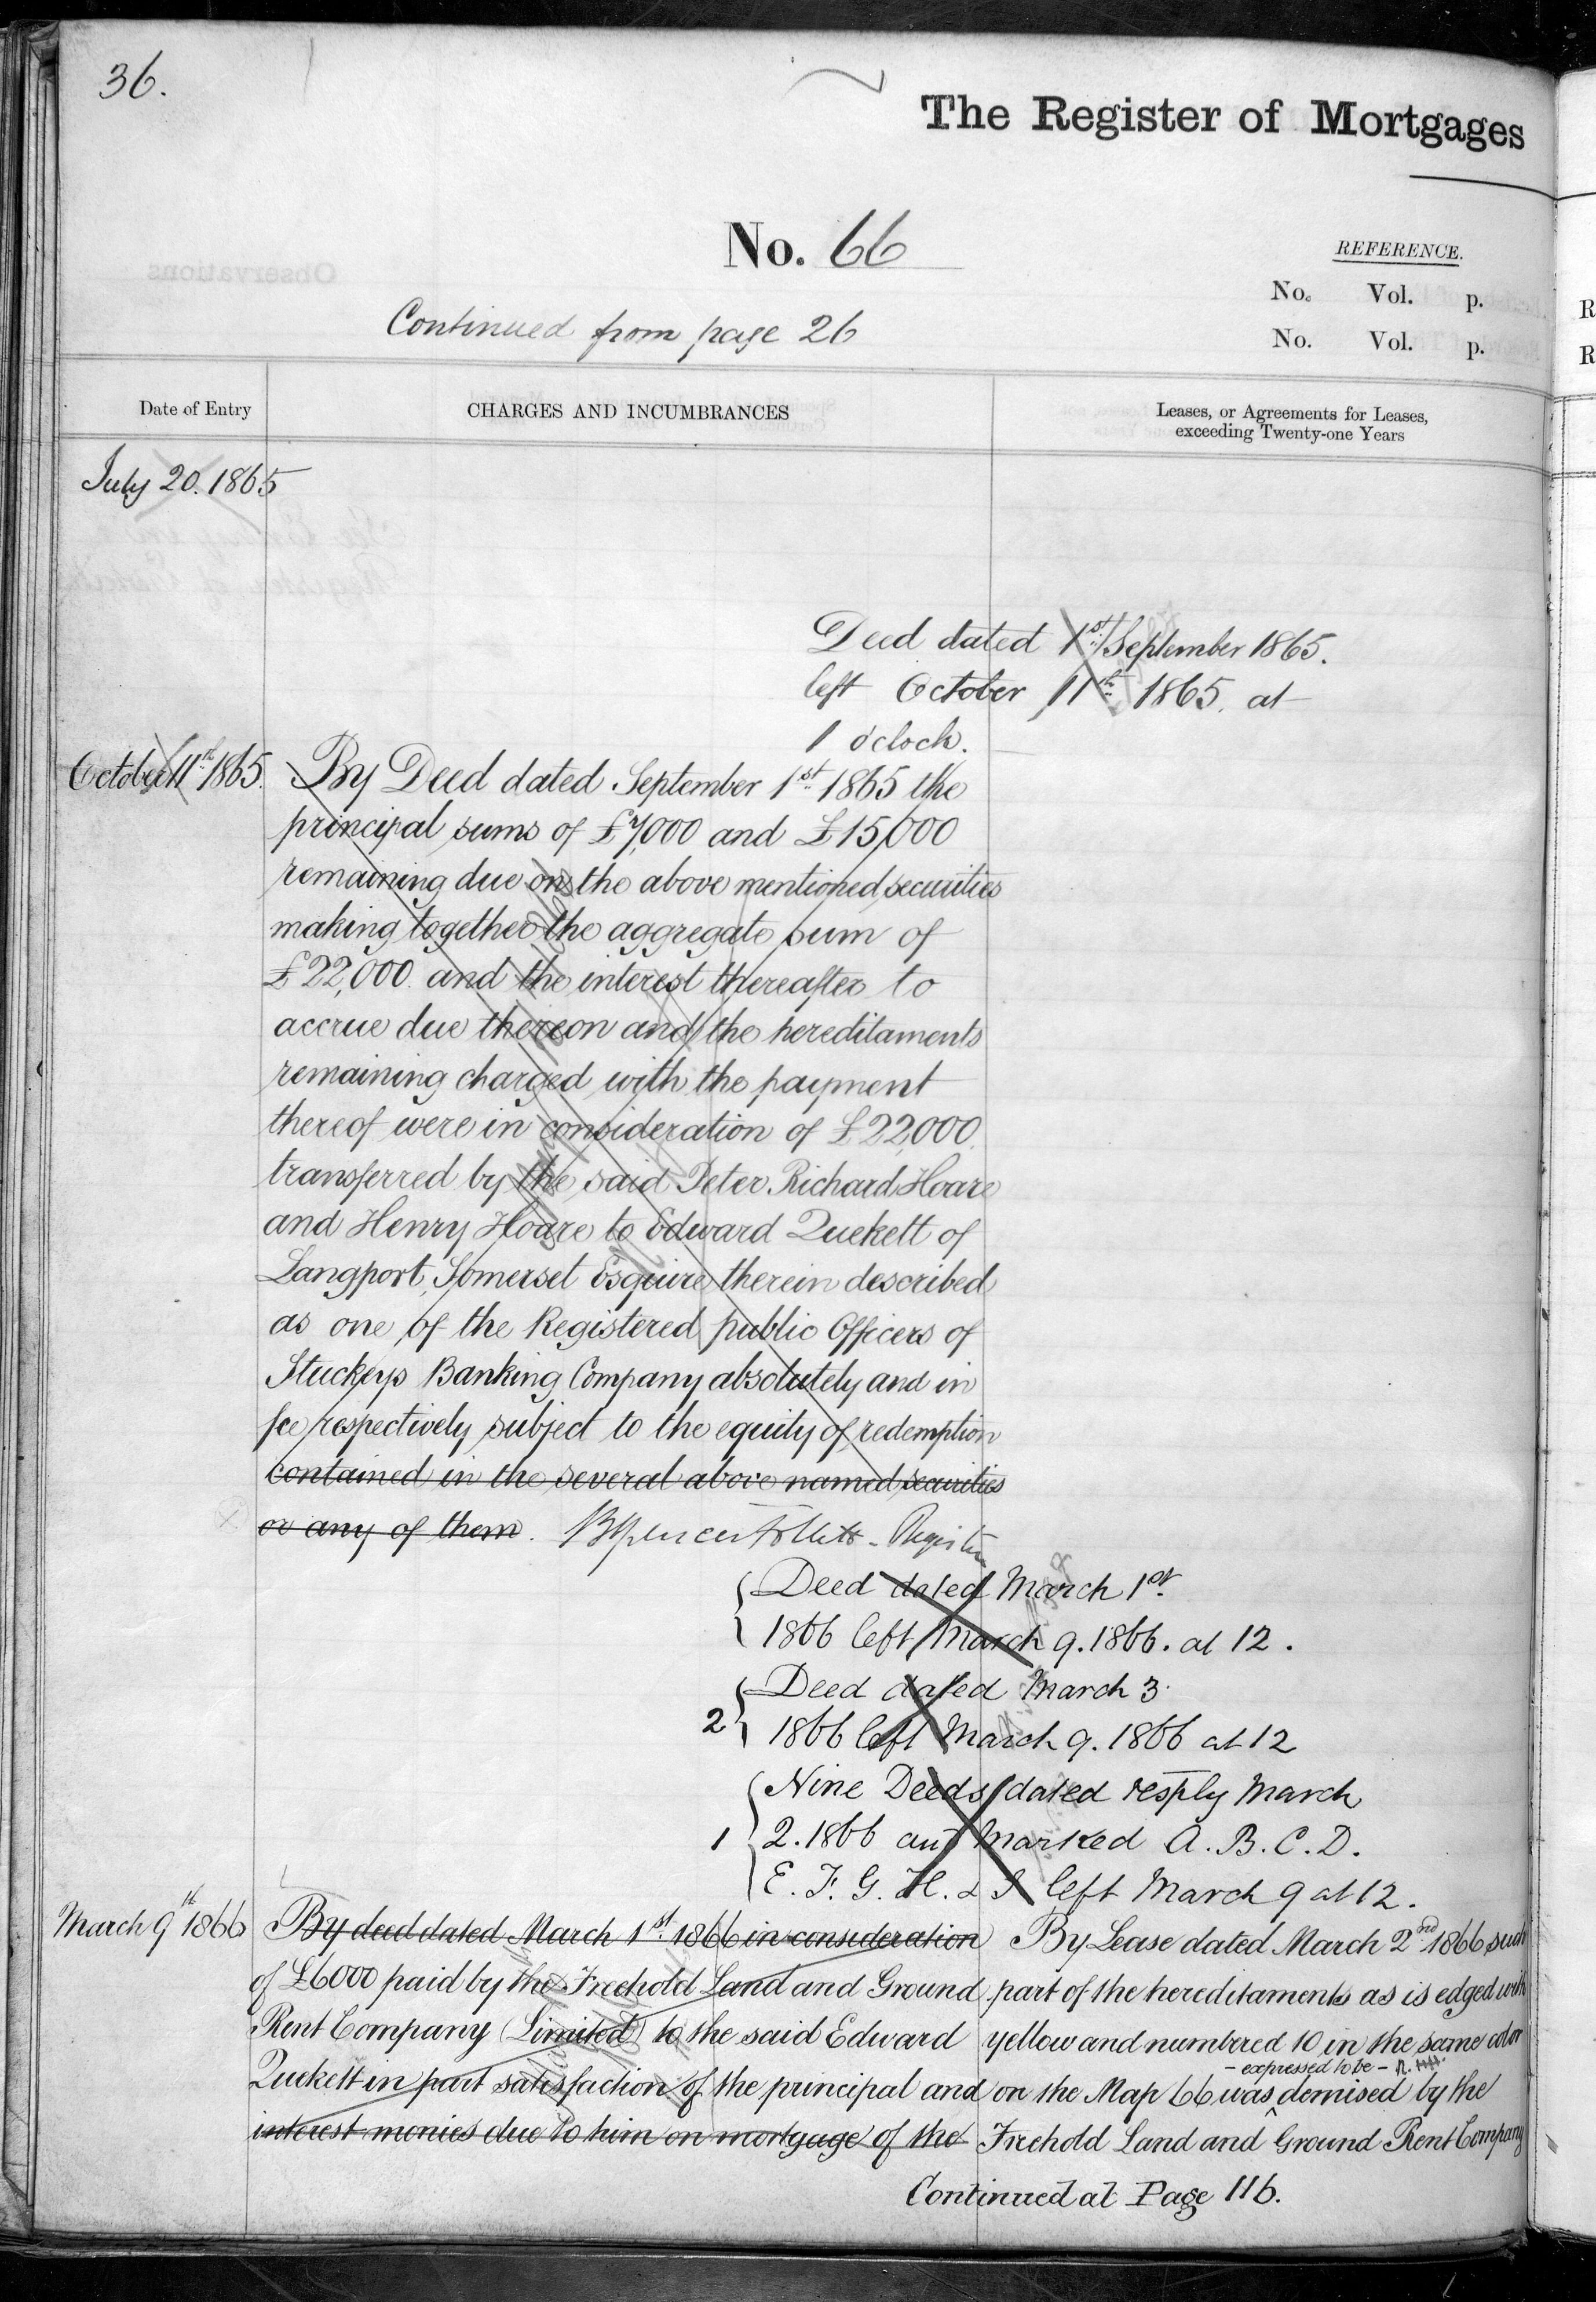 36.
The Register of Mortgages
No. 66
REFERENCE.
No. Vol. p.
No. Vol. p.
Continued from page 26
Date of Entry
CHARGES AND INCUMBRANCES
Leases, or Agreements for Leases,
exceeding Twenty-one Years
July 20. 1865
Deed dated 1st September 1865.
left October 11th 1865. at
1 o'clock.
October 11th 1865.
By Deed dated September 1st 1865 the
principal sums of £7,000 and £15,000
remaining due on the above mentioned securities
making together the aggregate sum of
£22,000. and the interest thereafter to
accrue due thereon and the hereditaments
remaining charged with the payment
thereof were in consideration of £22,000.
transferred by the said Peter Richard Hoare
and Henry Hoare to Edward Quekett of
Langport, Somerset Esquire therein described
as one of the Registered public Officers of
Stuckeys Banking Company absolutely and in
fee respectively subject to the equity of redemption
contained in the several above named securities
or any of them. Registrar
Deed dated March 1st
1866 left March 9. 1866. at 12.
Deed dated March 3.
2 1866 left March 9. 1866 at 12
Nine Deeds dated resply March
1 2. 1866 and marked A. B. C. D.
E. F. G. H. & I left March 9 at 12.
March 9th 1866
By deed dated March 1st 1866 in consideration
of £6000 paid by the Freehold Land and Ground
Rent Company (Limited) to the said Edward
Quekett in part satisfaction of the principal and
interest monies due to him on mortgage of the
By Lease dated March 2nd 1866 such
part of the hereditaments as is edged with
yellow and numbered 10 in the same color
- expressed to be -
on the Map 66 was demised by the
Freehold Land and Ground Rent Company
Continued at Page 116.